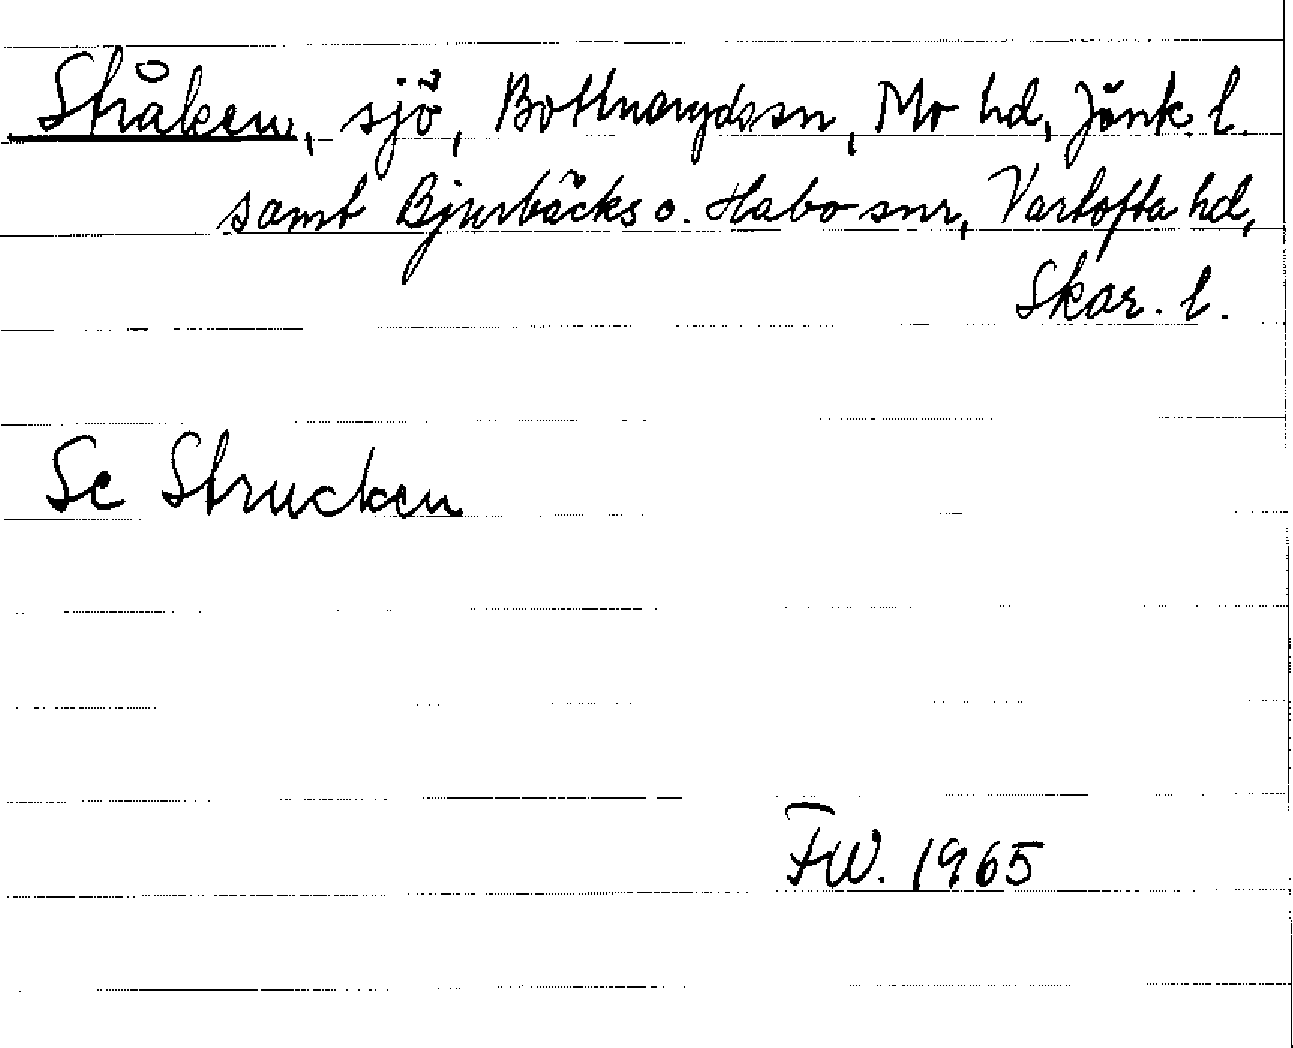 Stråken, sjö, Bottnarydssn, Mo hd, Jönk. l.
samt Bjurbäcks o. Habo snr, Vartofta hd,
Skar. l.
Se Strucken
FW. 1965